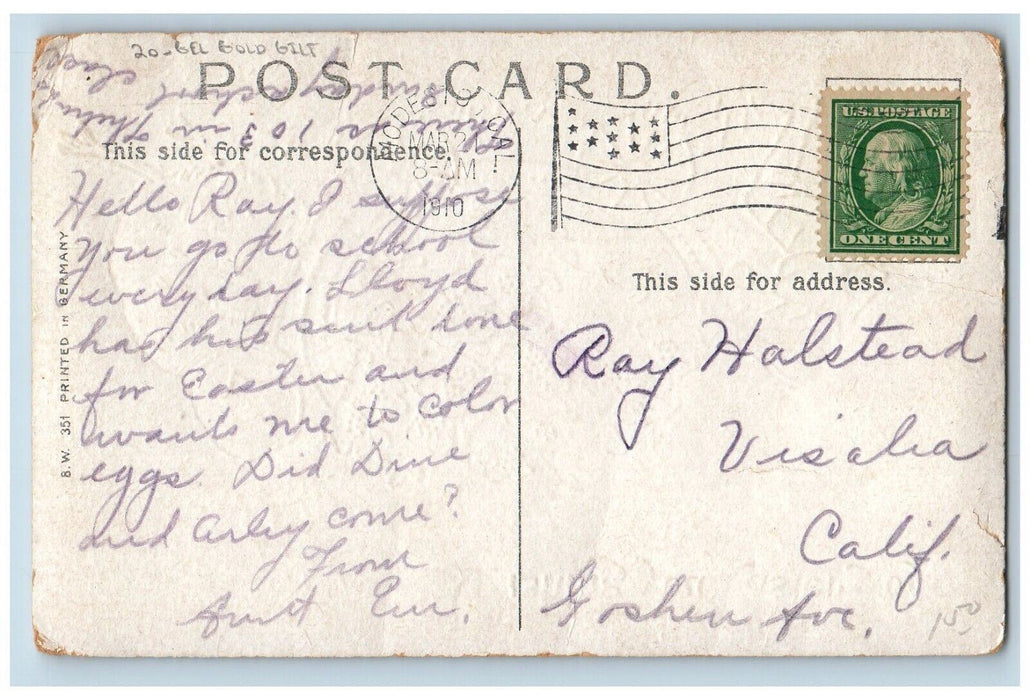 20-GEL GOLD GILT
POST CARD.
This side for correspondence.
MAR 21
8-AM
1910
U.S. POSTAGE
ONE CENT
Hello Ray. I suppose
you go to school
every day. Lloyd
has his suit done
for Easter and
wants me to color
eggs. Did
and Arley come?
From
Aunt
There's 103 in
Sunday school
class
B.W. 351 PRINTED IN GERMANY
This side for address.
Ray Halstead
Visalia
Calif.
Goshen Ave.
1.50